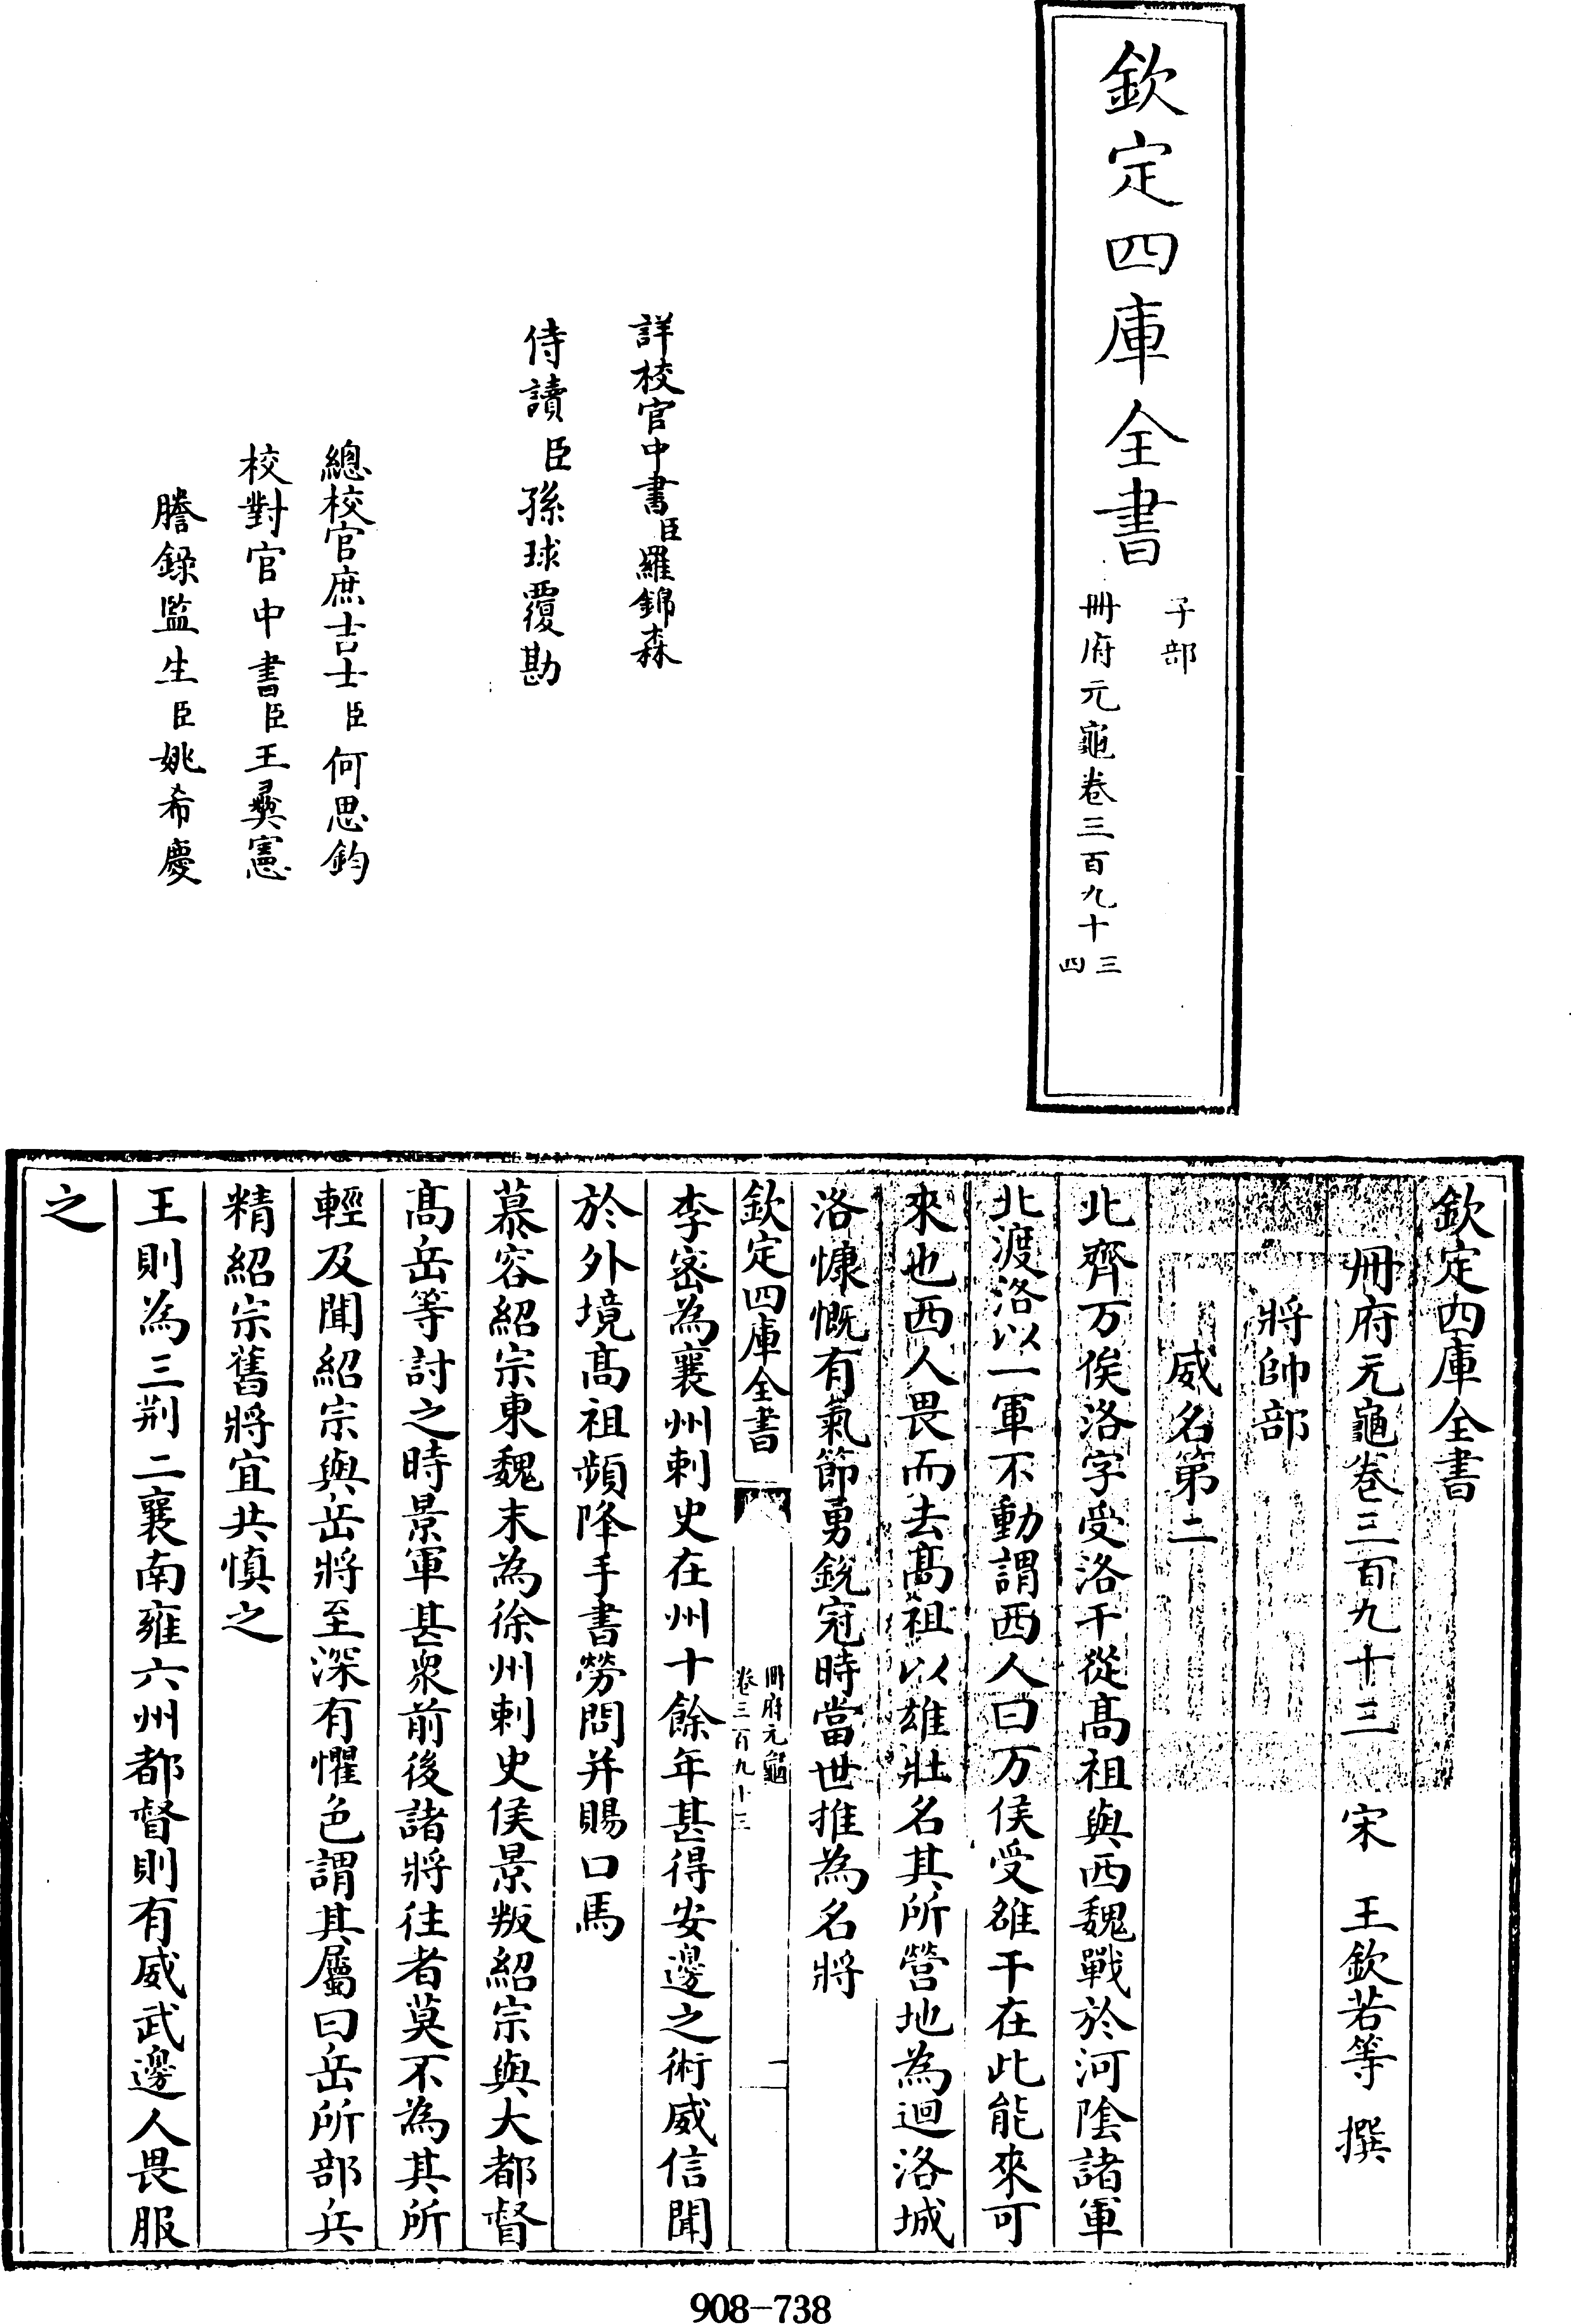 欽定四庫全書
子部
冊府元龜卷三百九十三
四
詳校官中書臣羅錦森
侍讀臣孫球覆勘
總校官庶吉士臣何思鈞
校對官中書臣王彝憲
謄錄監生臣姚希慶
欽定四庫全書
冊府元龜卷三百九十三　宋　王欽若等　撰
將帥部
威名第二
北齊万俟洛字受洛干從髙祖與西魏戰於河隂諸軍
北渡洛以一軍不動謂西人曰万俟受雒干在此能來可
來也西人畏而去髙祖以雄壯名其所營地為迴洛城
洛慷慨有氣節勇銳冠時當世推為名將
欽定四庫全書
冊府元龜
卷三百九十三
一
李密為襄州刺史在州十餘年甚得安邊之術威信聞
於外境髙祖頻降手書勞問并賜口馬
慕容紹宗東魏末為徐州刺史侯景叛紹宗與大都督
髙岳等討之時景軍甚衆前後諸將往者莫不為其所
輕及聞紹宗與岳將至深有懼色謂其屬曰岳所部兵
精紹宗舊將宜共慎之
王則為三荆二襄南雍六州都督則有威武邊人畏服
之
908-738